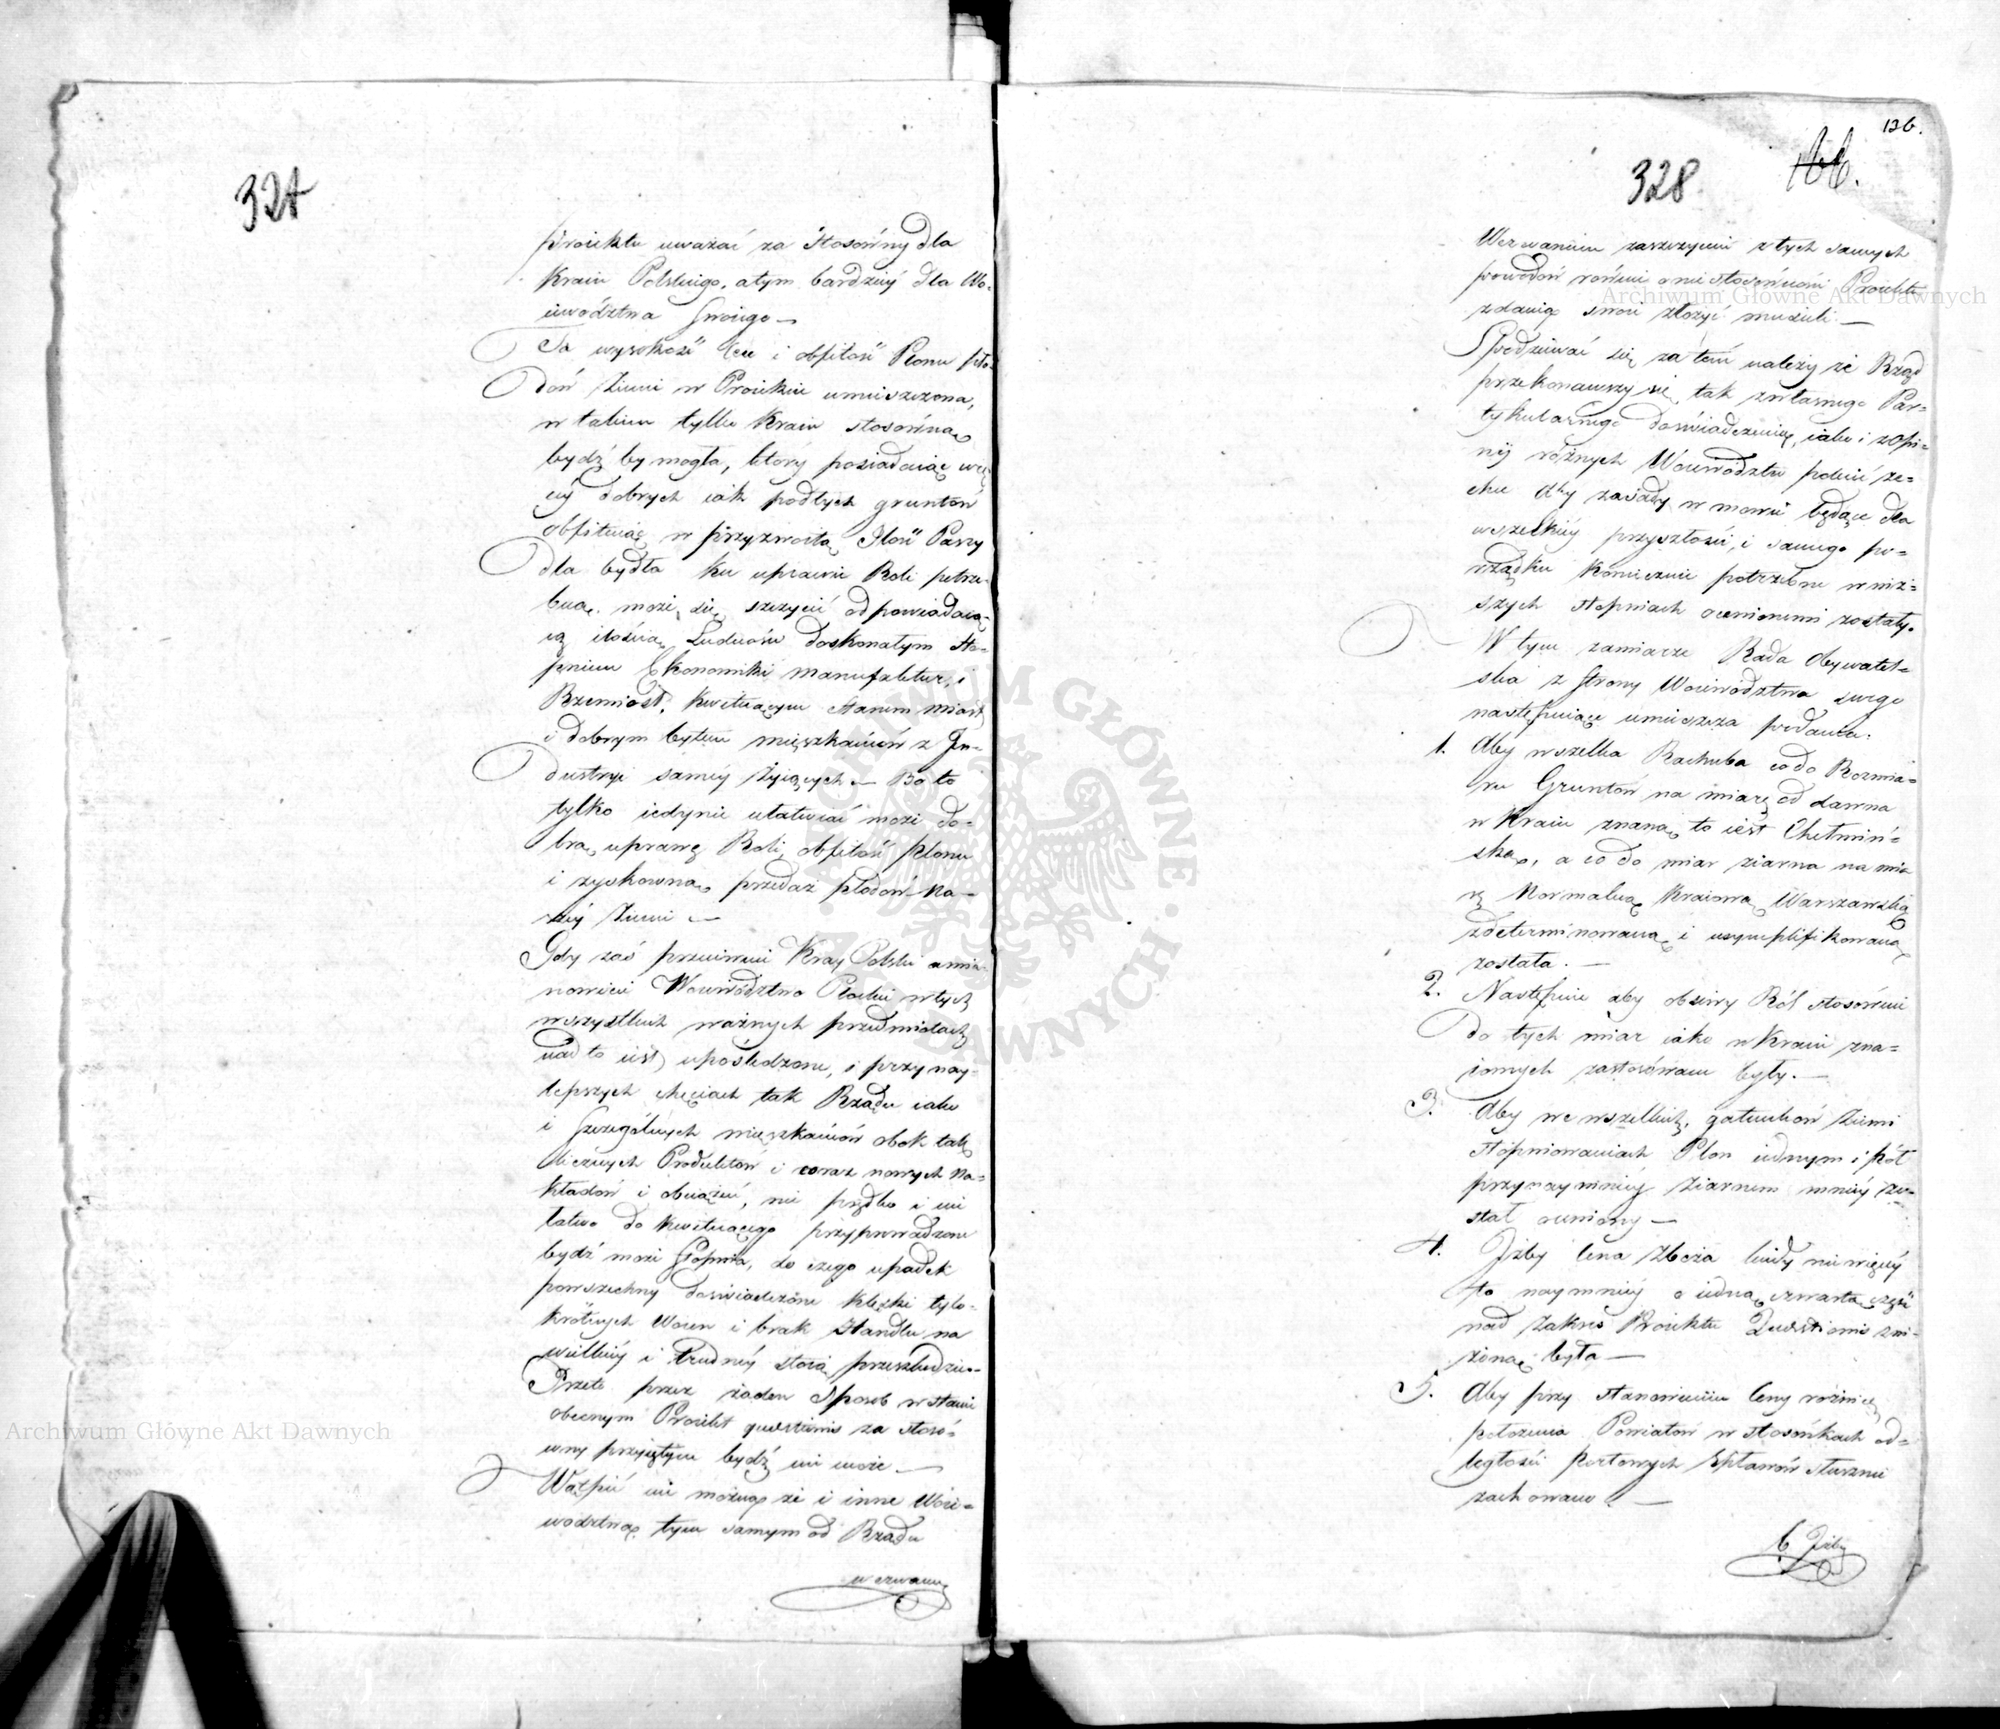 327
Proiektu uważać za stosowny dla
Kraiu Polskiego, a tym bardziéy dla Wo-
iewództwa Swoiego —
Ta wysokość Cen i obfitość Plonu pło-
dów Ziemi w Proiekcie umieszczona,
w takim tylko Kraiu stosowną
bydź by mogła, który posiadaiąc wię-
céy dobrych iak podłych gruntów
obfituiąc w przyzwoitą Ilość Paszy
dla bydła ku uprawie Roli potrze-
bną, może się szczycić odpowiadaią-
cą ilością Ludności doskonałym sto-
pniem Ekonomiki manufaktur, i
Rzemiosł, kwitnącym stanem miast
i dobrym bytem mięszkańców z In-
dustryi saméy żyiących — Bo to
tylko iedynie ułatwiać może do-
brą uprawę Roli, obfitość plonu
i zyskowną przedaż płodów na-
széy Ziemi —
Gdy zaś przeciwnie Kray Polski a mia-
nowicie Woiewództwo Płockie w tych
wszystkich ważnych przedmiotach
nad to iest upośledzone, i przy nay-
lepszych chęciach tak Rządu iako
i Szczególnych mięszkańców obok tak
licznych Produktów i coraz nowych na-
kładów i obciążeń, nie prędko i nie
łatwo do kwitnącego przyprowadzone
bydź może Stopnia, do czego upadek
powszechny doświadczone klęski tylo-
krotnych Woien i brak Handlu na
wielkiéy i trudnéy stoią przeszkodzie.
Przeto przez żaden sposób w stanie
obecnym Proiekt questionis za stoso-
wny przyiętym bydź nie może —
Wątpić nie można że i inne Woie-
wództwa tym samym od Rządu
wezwaniem
136.
328
166.
Wezwaniem zaszczyceni z tych samych
powodów równie o nie stosowności Proiektu
zdanie swoie złożyć musieli. —
Spodziewać się zatem należy że Rząd
przekonawszy się tak z własnego Par-
tykularnego doświadczenia, iako i z Opi-
nij różnych Woiewództw poleci ze-
chce aby zasady w mowie będące dla
wszelkiéy przyszłości, i samego po-
rządku koniecznie potrzebne w niż-
szych stopniach ocenionemi zostały.
W tym zamiarze Rada Obywatel-
ska z Strony Woiewództwa swego
następuiące umieszcza podania.
1. Aby wszelka Rachuba co do Rozmia-
ru Gruntów na miarę od dawna
w Kraiu znaną to iest Chełmiń-
ską, a co do miar ziarna na mia-
rę Normalną Kraiową Warszawską
zdeterminowaną i usymplifikowaną
została. —
2. Następnie aby obsiewy Ról stosownie
do tych miar iako w Kraiu zna-
iomych zastosowane były. —
3. Aby we wszelkich gatunków Ziemi
stopniowaniach Plon iednym i pół
przynaymniéy Ziarnem mniéy zo-
stał oceniony —
4. Iżby Cena Zboża kiedy nie więcéy
to naymniéy o iedną czwartą część
nad zakres Proiektu Questionis zni-
żoną była —
5. Aby przy stanowieniu Ceny różnica
położenia Powiatów w stosunkach od-
ległości Portowych Spławów słusznie
zachowane —
6 Iżby